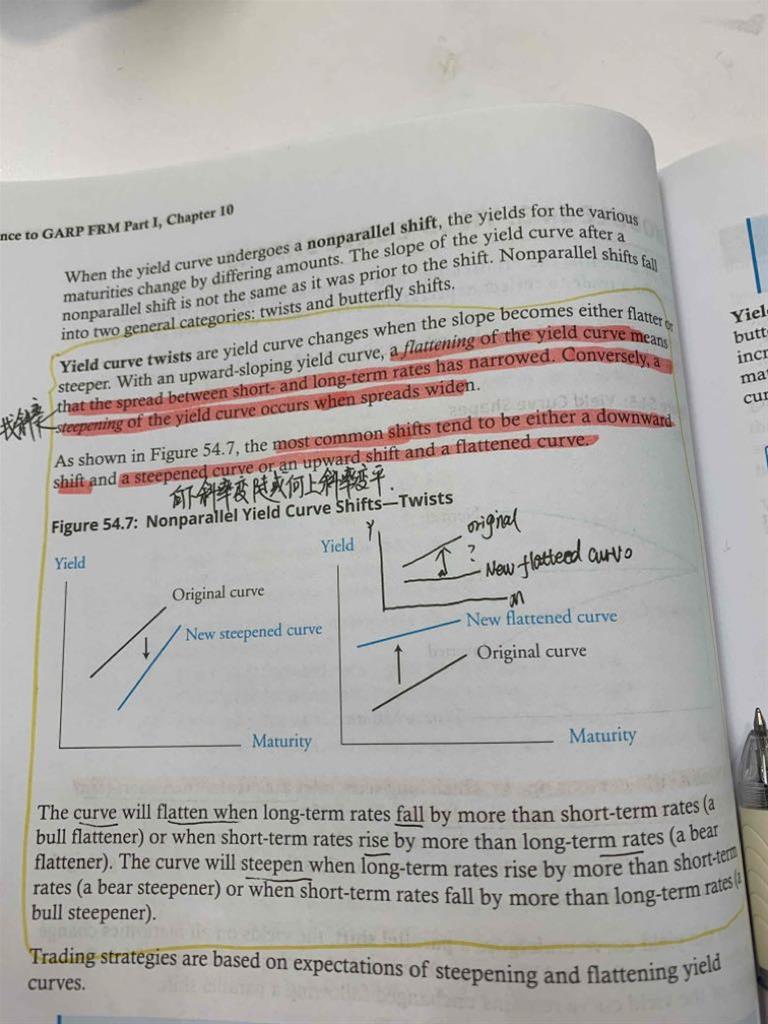 nce to GARP FRM Part I, Chapter 10
When the yield curve undergoes a nonparallel shift, the yields for the various
maturities change by differing amounts. The slope of the yield curve after a
nonparallel shift is not the same as it was prior to the shift. Nonparallel shifts fall
into two general categories: twists and butterfly shifts.
Yield curve twists are yield curve changes when the slope becomes either flatter or
steeper. With an upward-sloping yield curve, a flattening of the yield curve means
that the spread between short- and long-term rates has narrowed. Conversely, a
steepening of the yield curve occurs when spreads widen.
斜率
As shown in Figure 54.7, the most common shifts tend to be either a downward
shift and a steepened curve or an upward shift and a flattened curve.
向下斜率变陡或向上斜率变平.
Figure 54.7: Nonparallel Yield Curve Shifts—Twists
Yield
Original curve
New steepened curve
Maturity
Yield
Y
original
?
New flatteed curve
m
New flattened curve
Original curve
Maturity
The curve will flatten when long-term rates fall by more than short-term rates (a
bull flattener) or when short-term rates rise by more than long-term rates (a bear
flattener). The curve will steepen when long-term rates rise by more than short-term
rates (a bear steepener) or when short-term rates fall by more than long-term rates (a
bull steepener).
Trading strategies are based on expectations of steepening and flattening yield
curves.
Yiel
butt
incr
ma
cur